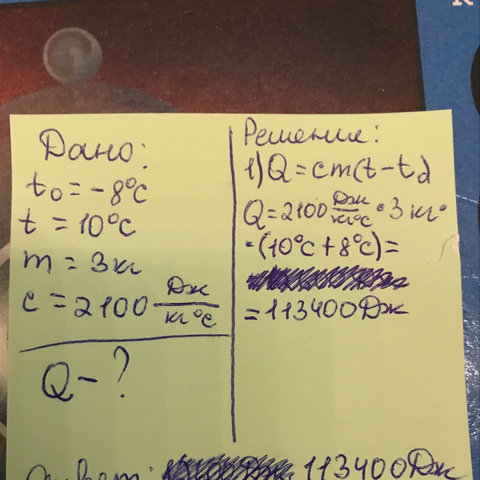 Дано:
t₀ = -8°C
t = 10°C
m = 3 кг
c = 2100 Дж/кг°C
Q - ?
Решение:
1) Q = cm(t - t₀)
Q = 2100 Дж/кг°C · 3 кг ·
· (10°C + 8°C) =
= 113400 Дж
Ответ: 113400 Дж